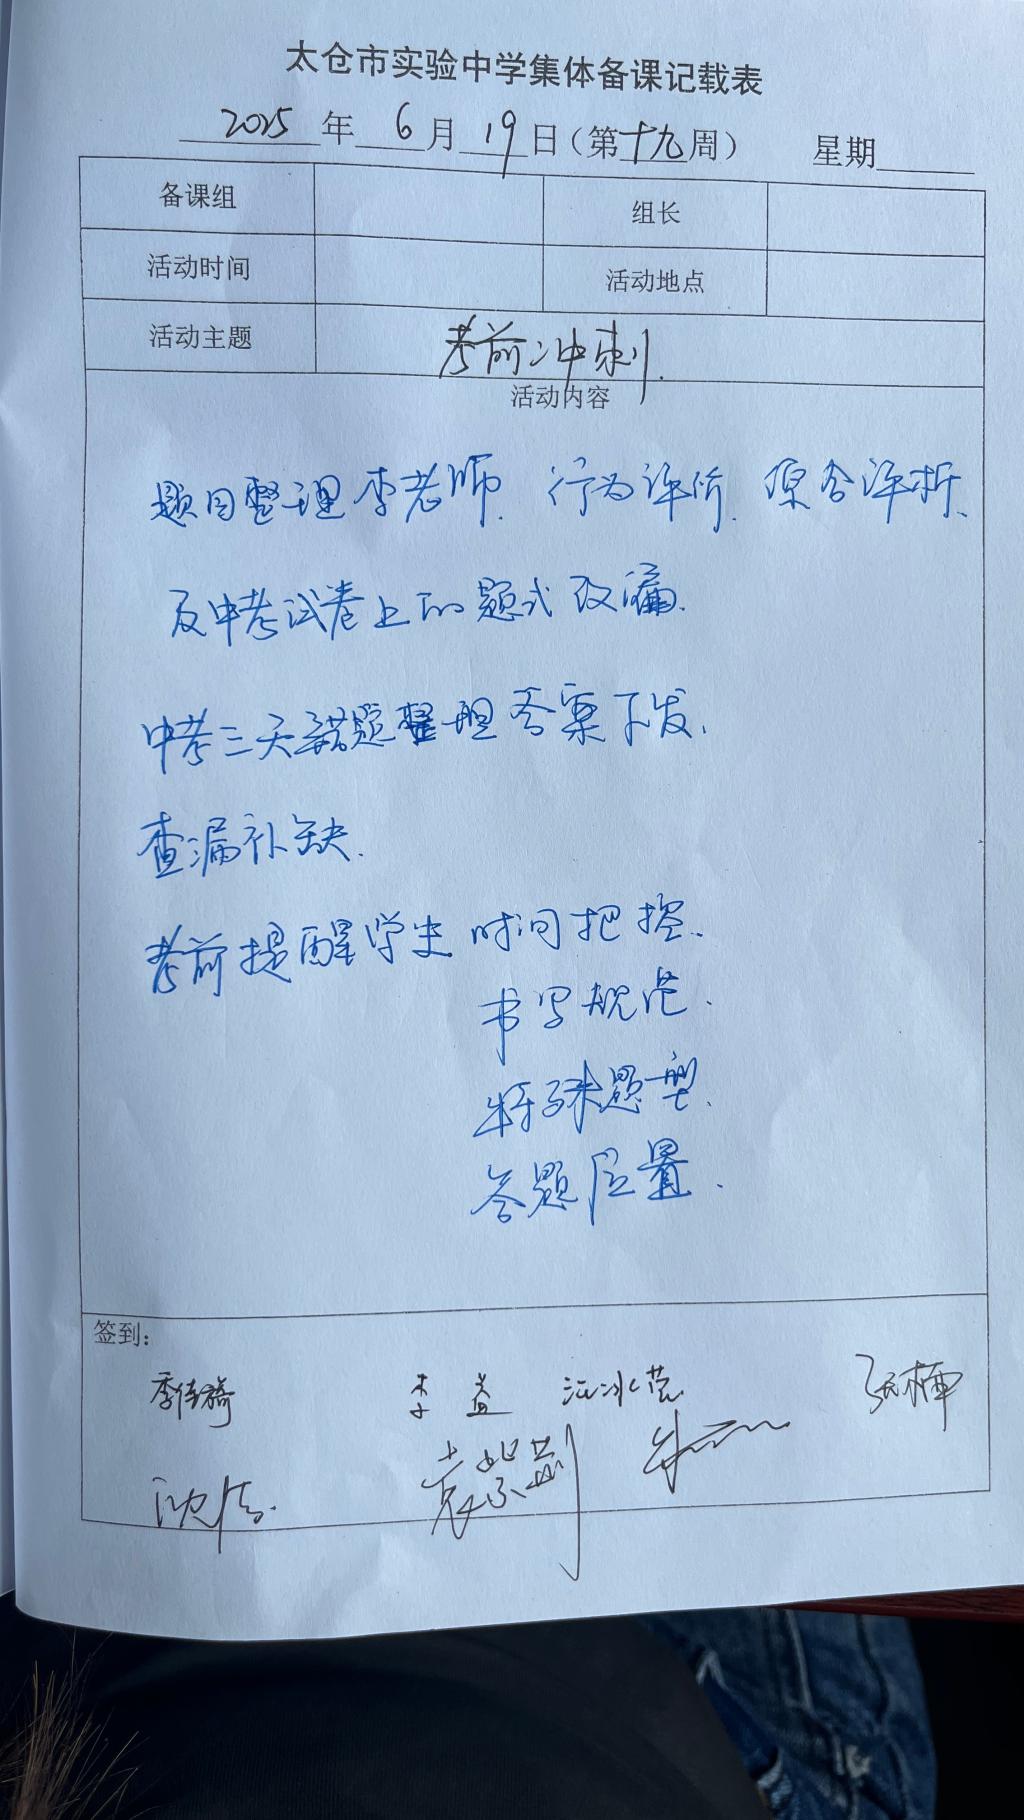 太仓市实验中学集体备课记载表
2025年6月19日（第十九周） 星期
备课组 组长
活动时间 活动地点
活动主题 考前冲刺.
活动内容
题目整理 李老师. 行为评价. 综合评析、
及中考试卷上的题式改编.
中考三天错题整理 答案下发.
查漏补缺.
考前提醒学生 时间把控.
书写规范.
特殊题型.
答题位置.
签到：
季佳琦 李益 江冰芸 张楠
沈倩